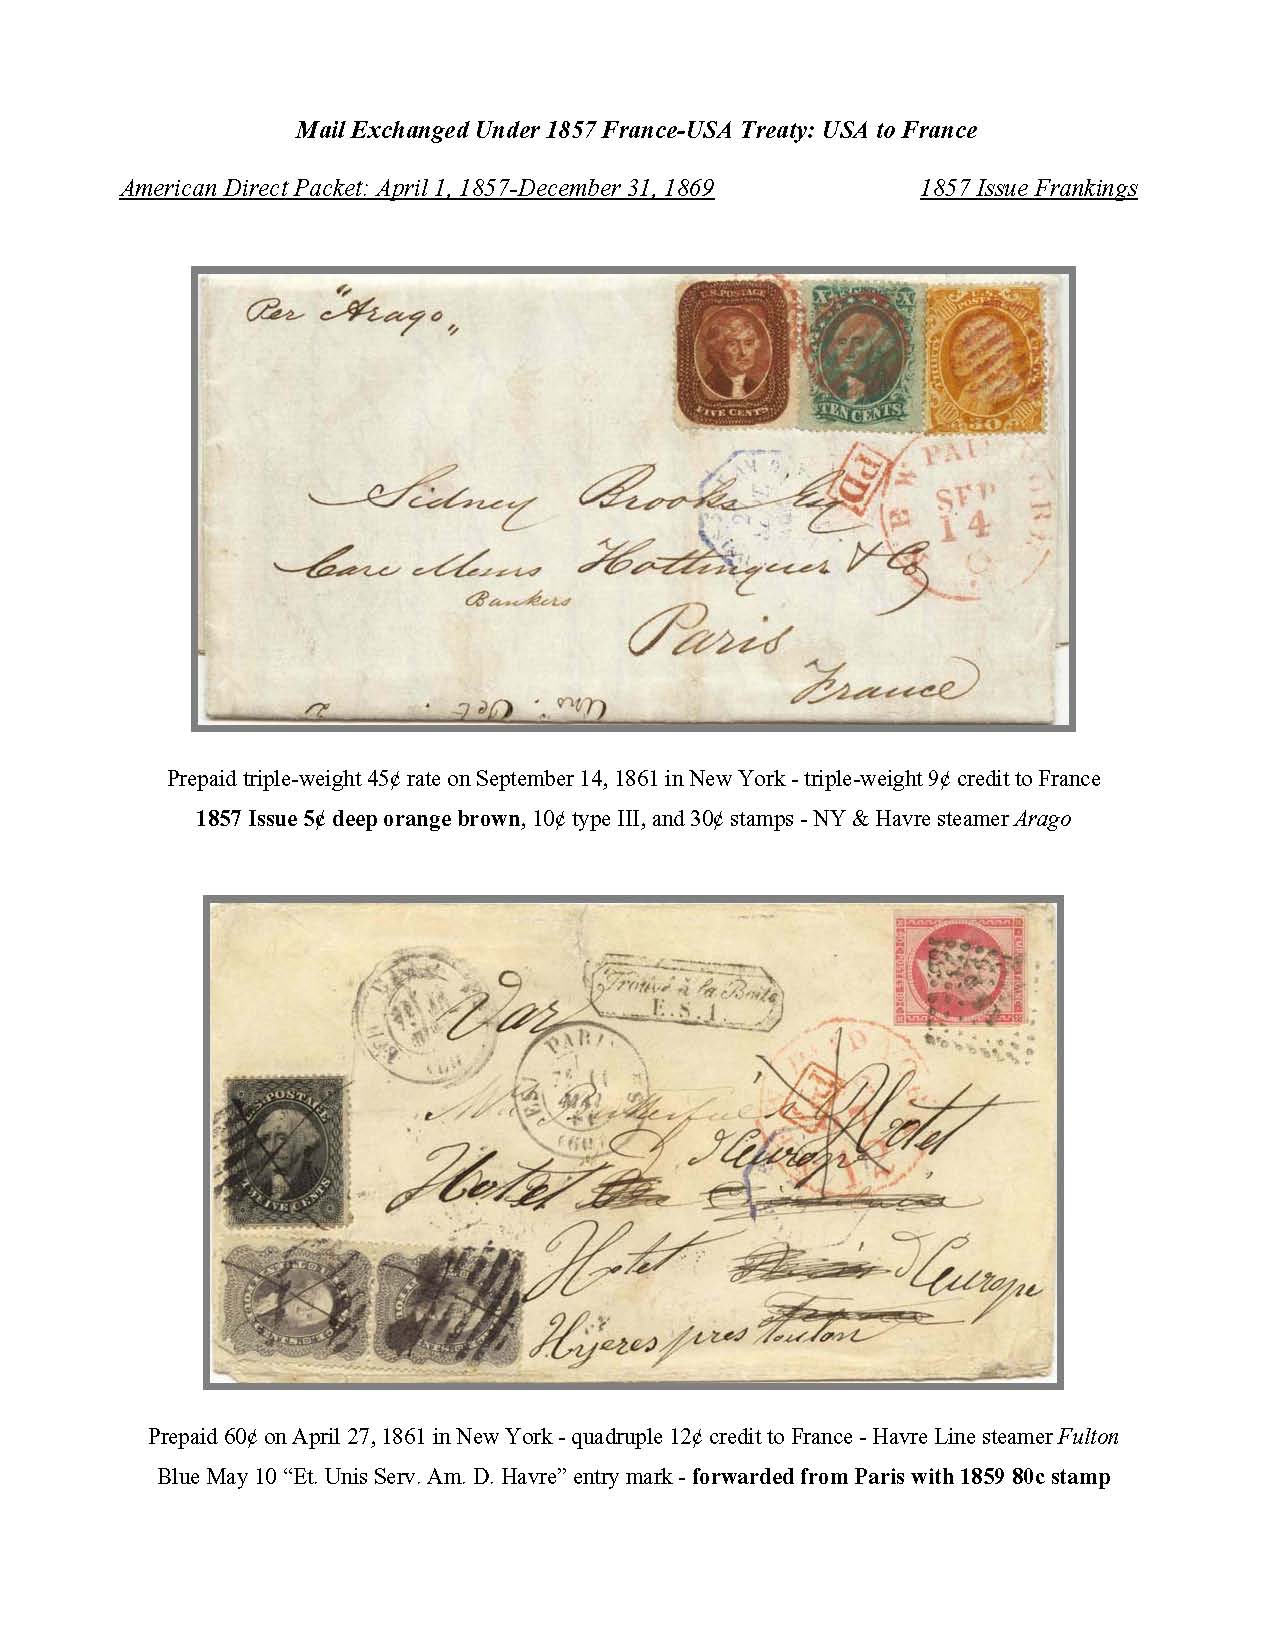 Mail Exchanged Under 1857 France-USA Treaty: USA to France
American Direct Packet: April 1, 1857-December 31, 1869
1857 Issue Frankings
Per "Arago"
U.S. POSTAGE
FIVE CENTS
X X
TEN CENTS
30
PD
PAID
SEP
14
Sidney Brooks Esq
Care Messrs Hottinguer & Co
Bankers
Paris
France
Prepaid triple-weight 45¢ rate on September 14, 1861 in New York - triple-weight 9¢ credit to France
1857 Issue 5¢ deep orange brown, 10¢ type III, and 30¢ stamps - NY & Havre steamer Arago
Trouvé à la Boite
E.S.1.
Var
PARIS
U.S. POSTAGE
TWELVE CENTS
PD
12
Hotel
d'Europe
Hotel
Hotel d'Europe
Hyeres pres Toulon
Prepaid 60¢ on April 27, 1861 in New York - quadruple 12¢ credit to France - Havre Line steamer Fulton
Blue May 10 “Et. Unis Serv. Am. D. Havre” entry mark - forwarded from Paris with 1859 80c stamp